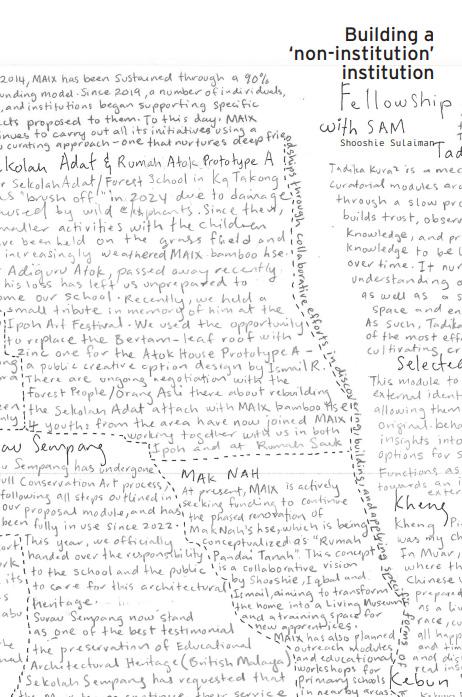 Building a
'non-institution'
institution
Fellowship
with SAM
Shooshie Sulaiman
2014, MAIX has been sustained through a 90%
unding model. Since 2019, a number of individuals,
, and institutions began supporting specific
cts proposed to them. To this day, MAIX
inues to carry out all its initiatives using a
curating approach – one that nurtures deep frie
ndships through collaborative efforts in discovering, building, and applying specific forms of
ekolah Adat & Rumah Atok Prototype A
r Sekolah Adat / Forest School in Kg Takong
as "brush off" in 2024 due to damage
aused by wild elephants. Since then,
maller activities with the children
ve been held on the grass field and
increasingly weathered MAIX bamboo hse.
Adiguru Atok, passed away recently.
his loss has left us unprepared to
ome our school. Recently, we held a
small tribute in memory of him at the
Ipoh Art Festival. We used the opportunity
to replace the Bertam-leaf roof with
zinc one for the Atok House Prototype A –
a public creative option design by Ismail R.
There are ongoing negotiation with the
Forest People / Orang Asli there about rebuilding
the Sekolah Adat attach with MAIX bamboo Hse
4 youths from the area have now joined MAIX
working together with us in both
Ipoh and at Rumah Sauk
au Sempang
u Sempang has undergone
ull Conservation Art process,
following all steps outlined in
our proposal module, and has
been fully in use since 2022.
This year, we officially
handed over the responsibility
to the school and the public
to care for this architectural
heritage.
Surau Sempang now stand
as one of the best testimonial
the preservation of Educational
Architectural Heritage (British Malaya)
Sekolah Sempang has requested that
their service
MAK NAH
At present, MAIX is actively
seeking funding to continue
the phased renovation of
Mak Nah's hse, which is being
conceptualized as "Rumah
Pandai Tanah". This concept
is a collaborative vision
by Shooshie, Iqbal and
Ismail, aiming to transform
the home into a Living Museum
and a training space for
new apprentices.
MAIX has also planned
outreach modules
and educational
workshops for
primary schools
in nearby areas
Tad
Tadika Kura² is a mec
Curatorial modules aro
through a slow pro
builds trust, observ
Knowledge, and pr
Knowledge to be l
over time. It nur
understanding o
as well as a s
space and en
As such, Tadika
of the most effe
cultivating cr
Selected
This module to
external ident
allowing them
original beho
insights into
options for s
Functions as
towards an i
exter
Kheng
Kheng Pi
was my ch
In Muar,
where th
Chinese v
prepared
as a l
race, cu
all happ
and tim
and dis
real ins
Kebun